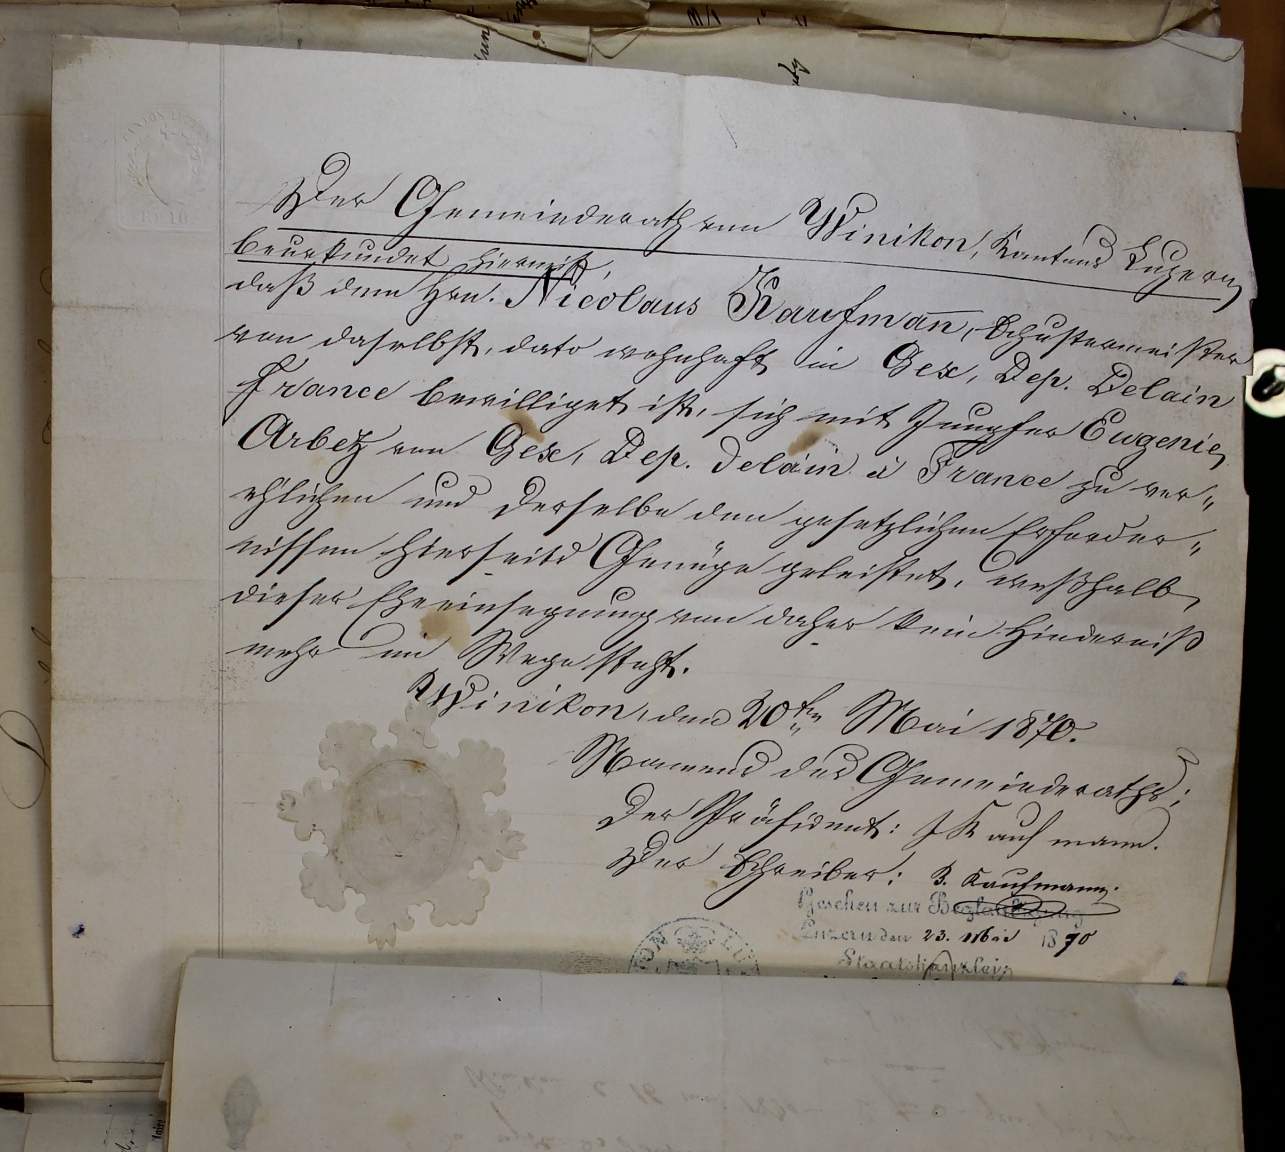 Der Gemeinderath von Winikon, Kantons Luzern
beurkundet hiermit,
daß dem Hrn. Nicolaus Kaufmann, Schustermeister
von daselbst, dato wohnhaft in Gex, Dep. Delain
France bewilliget ist, sich mit Jungfer Eugenie
Arbez von Gex, Dep. delain à France zu ver„
ehlichen und derselbe den gesetzlichen Erforder„
nissen hierseits Genüge geleistet, weßhalb
dieser Eheeinsegnung von daher kein Hinderniß
mehr im Wege steht.
Winikon, den 20ten Mai 1870.
Namens des Gemeinderaths;
Der Präsident: J Kaufmann.
Der Schreiber: B. Kaufmann.
Gesehen zur Beglaubigung
Luzern den 23. Mai 1870
Staatskanzlei